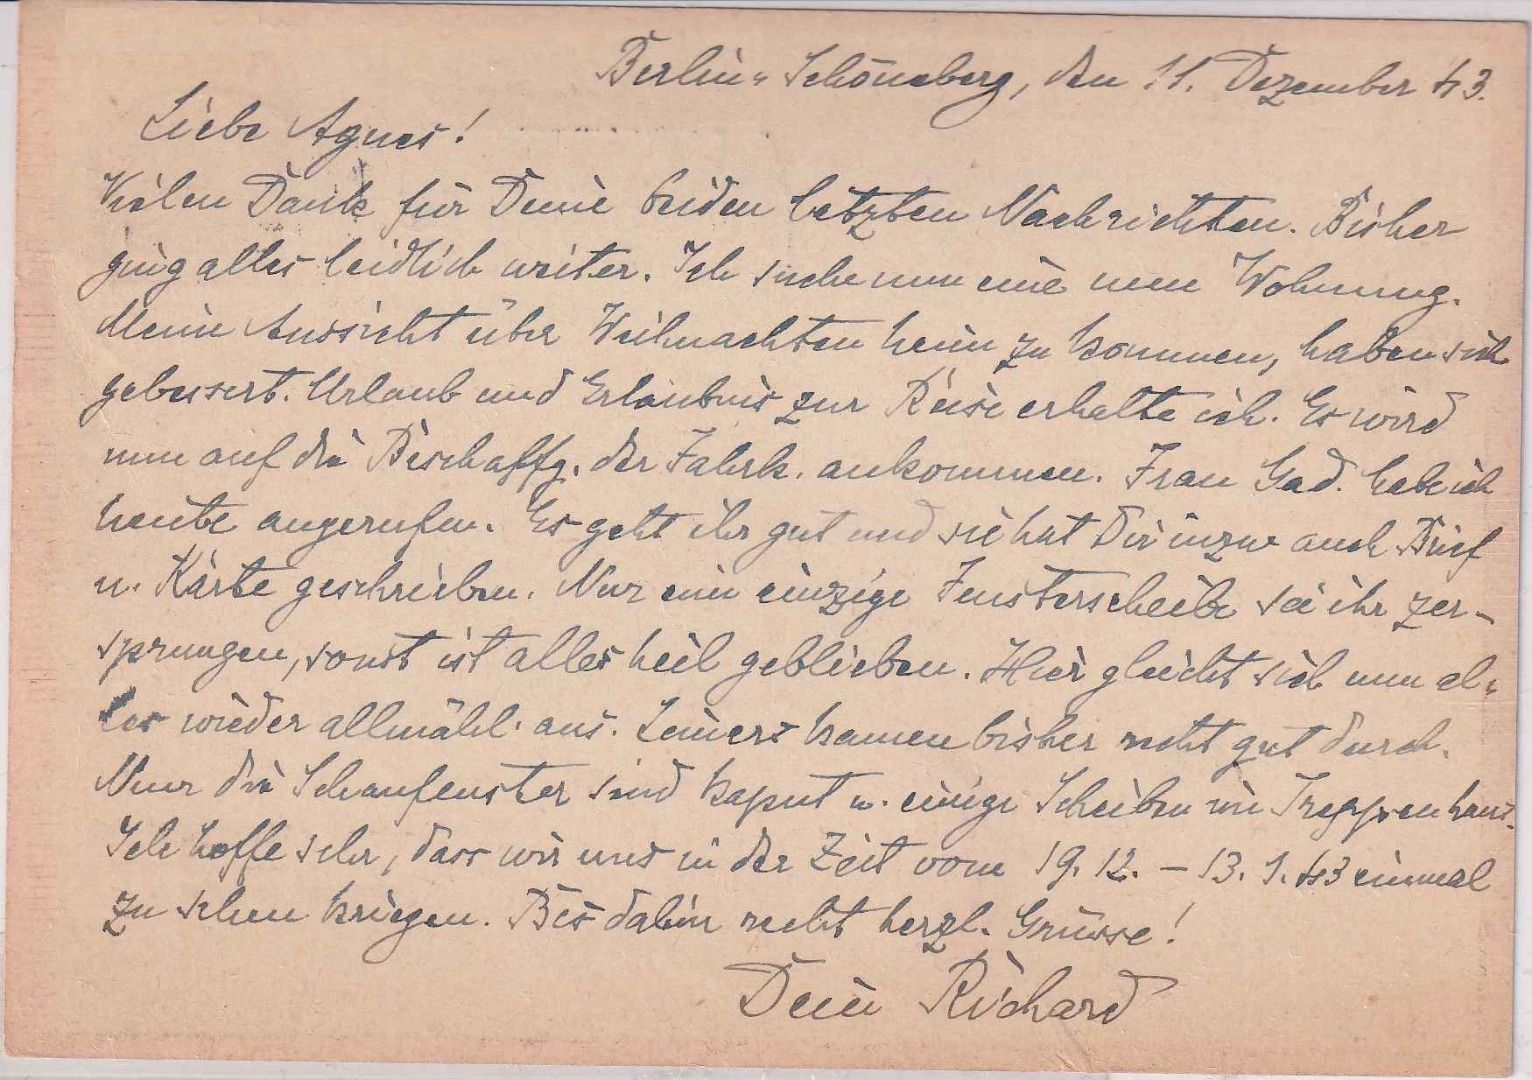 Berlin-Schöneberg, den 11. Dezember 43.
Liebe Agnes!
Vielen Dank für Deine beiden letzten Nachrichten. Bisher
ging alles leidlich weiter. Ich suche nun eine neue Wohnung.
Meine Aussicht über Weihnachten heim zu kommen, haben sich
gebessert. Urlaub und Erlaubnis zur Reise erhalte ich. Es wird
nun auf die Beschaffg. der Fahrk. ankommen. Frau Gad. habe ich
heute angerufen. Es geht ihr gut und sie hat Dir inzw auch Brief
u. Karte geschrieben. Nur eine einzige Fensterscheibe sei ihr zer-
sprungen, sonst ist alles heil geblieben. Hier gleicht sich nun al-
les wieder allmähl. aus. kamen bisher recht gut durch.
Nur die Schaufenster sind kaput u. einige Scheiben im Treppenhaus.
Ich hoffe sehr, dass wir uns in der Zeit vom 19. 12. – 13. 1. 43 einmal
zu sehen kriegen. Bis dahin recht herzl. Grüsse!
Dein Richard